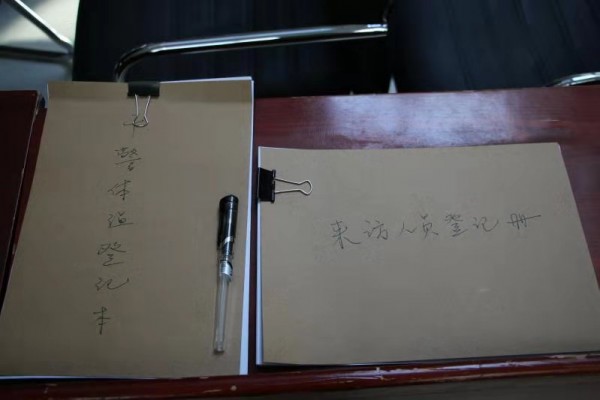 干警体温登记本
来访人员登记册